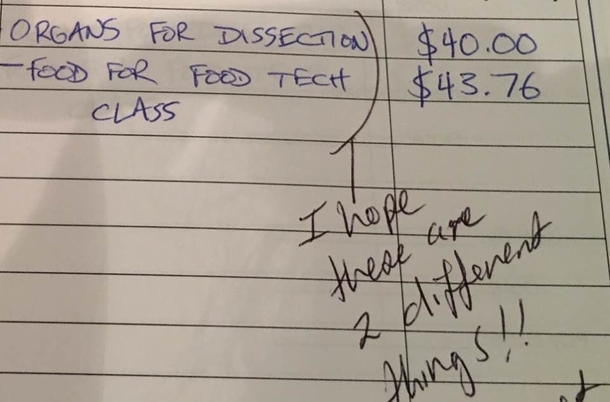 ORGANS FOR DISSECTION $40.00
-FOOD FOR FOOD TECH $43.76
CLASS
I hope
these are
2 different
things!!